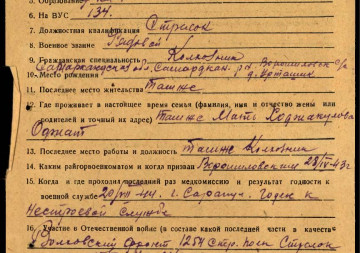 6. На ВУС 134.
7. Должностная квалификация Стрелок
8. Военное звание Рядовой
9. Гражданская специальность Колхозник
Самаркандская обл. Самаркан. р-н Ворошиловск с/с
10. Место рождения д. Орташик
11. Последнее место жительства Там же
12. Где проживает в настоящее время семья (фамилия, имя и отчество жены или
родителей и точный их адрес) Там же Мать Ходжакулова
13. Последнее место работы и должность Там же Колхозник
14. Каким райгорвоенкоматом и когда призван Ворошиловским 28/IV-43 г
15. Когда и где проходил последний раз медкомиссию и результат годности к
военной службе 20/VII 44 г. г. Сарапул. Годен к
нестроевой службе
16. Участие в Отечественной войне (в составе какой последней части в качестве
Волховский фронт 1254 стр. полк Стрелок